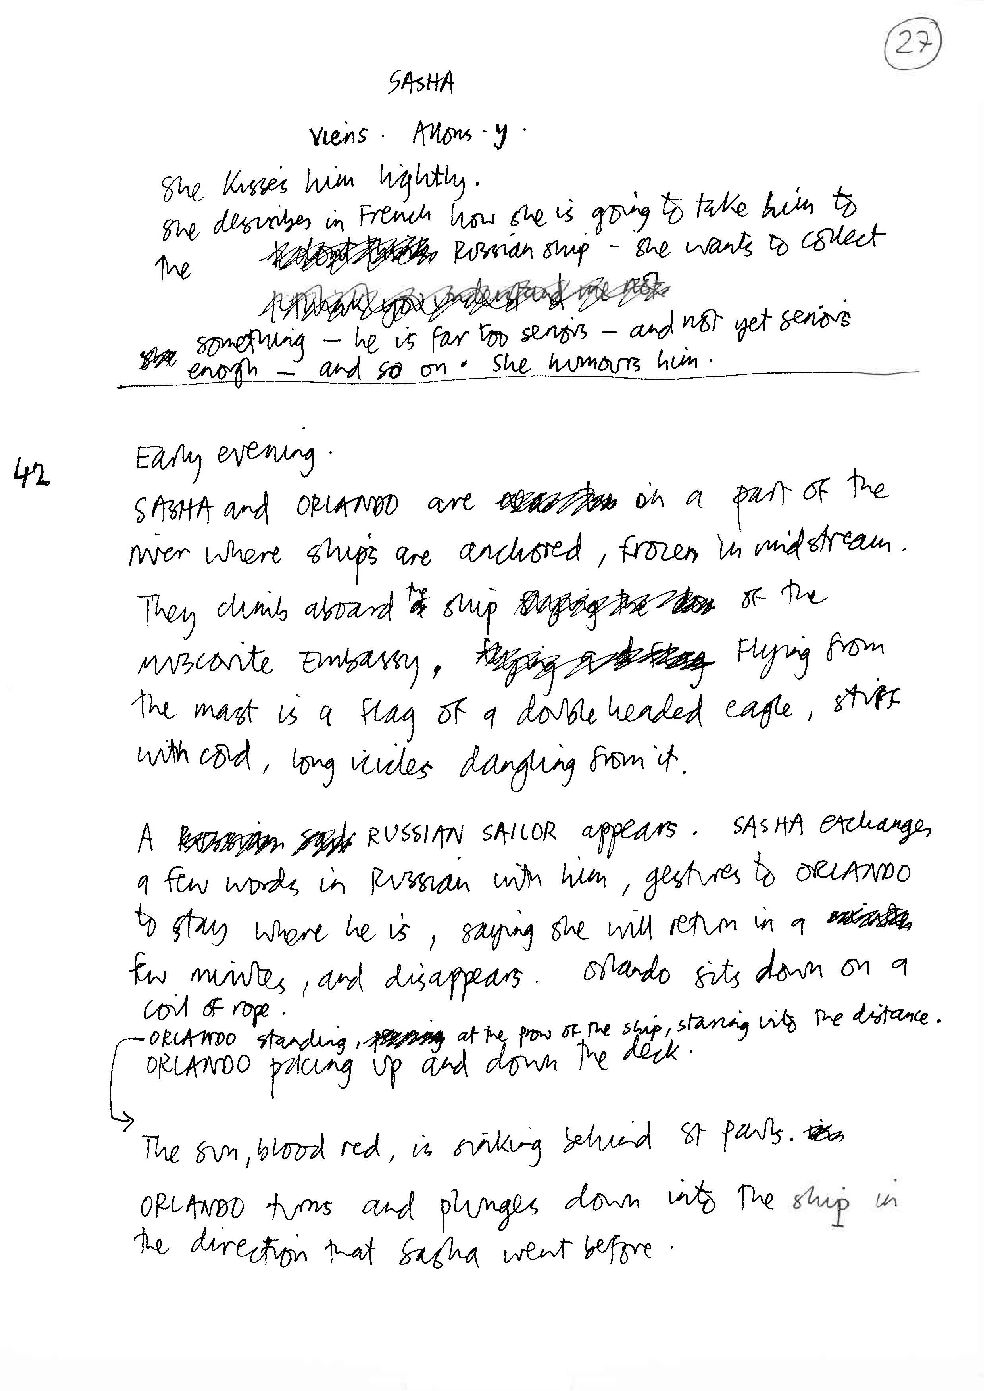 27
SASHA
Viens. Allons-y.
She kisses him lightly.
She describes in French how she is going to take him to
the Russian ship - she wants to collect
something - he is far too serious - and not yet serious
enough - and so on. She humours him.
42
Early evening.
SASHA and ORLANDO are on a part of the
river where ships are anchored, frozen in midstream.
They climb aboard the ship of the
Muscovite Embassy, Flying from
the mast is a flag of a double headed eagle, stiff
with cold, long icicles dangling from it.
A RUSSIAN SAILOR appears. SASHA exchanges
a few words in Russian with him, gestures to ORLANDO
to stay where he is, saying she will return in a
few minutes, and disappears. Orlando sits down on a
coil of rope.
ORLANDO standing, at the prow of the ship, staring into the distance.
ORLANDO pacing up and down the deck.
The sun, blood red, is sinking behind St Pauls.
ORLANDO turns and plunges down into the ship in
the direction that Sasha went before.